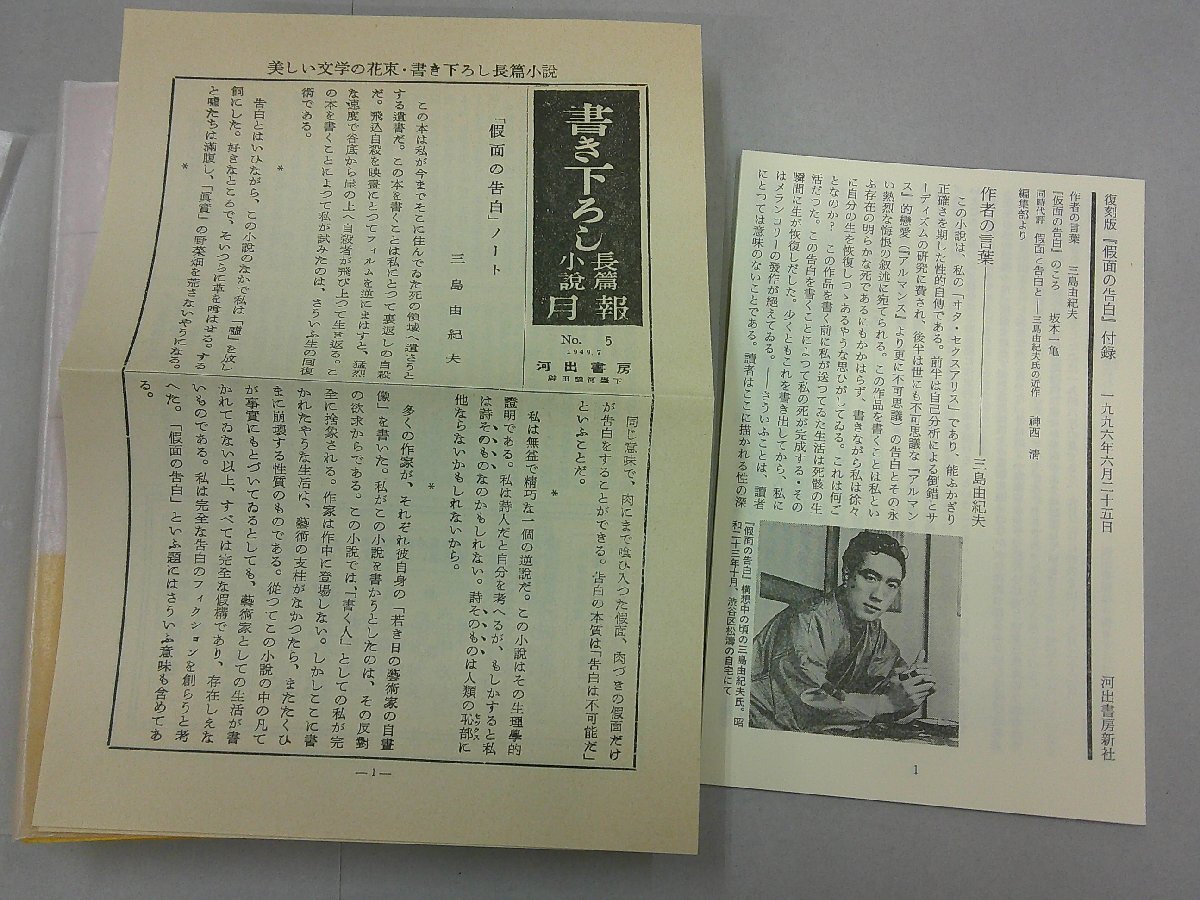 美しい文学の花束・書き下ろし長篇小説
書き下ろし
長篇小説
月報
No. 5
1949.7
河出書房
神田駿河臺下
「假面の告白」ノート
三島由紀夫
この本は私が今までそこに住んでゐた死の領域へ遺さうと
する遺書だ。この本を書くことは私にとつて裏返しの自殺
だ。飛込自殺を映畫にとつてフィルムを逆にまはすと、猛烈
な速度で谷底から崖の上へ自殺者が飛び上つて生き返る。こ
の本を書くことによつて私が試みたのは、さういふ生の回復
術である。
*
告白とはいひながら、この小説のなかで私は「嘘」を放し
飼にした。好きなところで、そいつらに草を喰はせる。する
と嘘たちは滿腹し、「眞實」の野菜畑を荒さないやうになる。
*
同じ意味で、肉にまで喰ひ入つた假面、肉づきの假面だけ
が告白をすることができる。告白の本質は「告白は不可能だ」
といふことだ。
*
私は無益で精巧な一個の逆説だ。この小説はその生理學的
證明である。私は詩人だと自分を考へるが、もしかすると私
は詩そのものなのかもしれない。詩そのものは人類の恥部に
他ならないかもしれないから。
*
多くの作家が、それぞれ彼自身の「若き日の藝術家の自畫
像」を書いた。私がこの小説を書かうとしたのは、その反對
の欲求からである。この小説では、「書く人」としての私が完
全に捨象される。作家は作中に登場しない。しかしここに書
かれたやうな生活は、藝術の支柱がなかつたら、またたくひ
まに崩壊する性質のものである。從つてこの小説の中の凡て
が事實にもとづいてゐるとしても、藝術家としての生活が書
かれてゐない以上、すべては完全な假構であり、存在しえな
いものである。私は完全な告白のフィクションを創らうと考
へた。「假面の告白」といふ題にはさういふ意味も含めてあ
る。
—1—
復刻版『假面の告白』付録　一九九六年六月二十五日　河出書房新社
作者の言葉　三島由紀夫
『仮面の告白』のころ　坂本一亀
同時代評　假面と告白と——三島由紀夫氏の近作　神西　清
編集部より
作者の言葉　三島由紀夫
この小説は、私の「ヰタ・セクスアリス」であり、能ふかぎり
正確さを期した性的自傳である。前半は自己分析による倒錯とサ
ーディズムの研究に費され、後半は世にも不可思議な「アルマン
ス」的戀愛（「アルマンス」より更に不可思議）の告白とその永
い熱烈な悔恨の叙述に宛てられる。この作品を書くことは私とい
ふ存在の明らかな死であるにもかかはらず、書きながら私は徐々
に自分の生を恢復しつゝあるやうな思ひがしてゐる。これは何ご
となのか？　この作品を書く前に私が送つてゐた生活は死骸の生
活だつた。この告白を書くことによつて私の死が完成する・その
瞬間に生が恢復しだした。少くともこれを書き出してから、私に
はメランコリーの發作が絶えてゐる。——さういふことは、讀者
にとつては意味のないことである。讀者はここに描かれる性の深
『假面の告白』構想中の頃の三島由紀夫氏。昭
和二十三年十月、渋谷区松濤の自宅にて
1